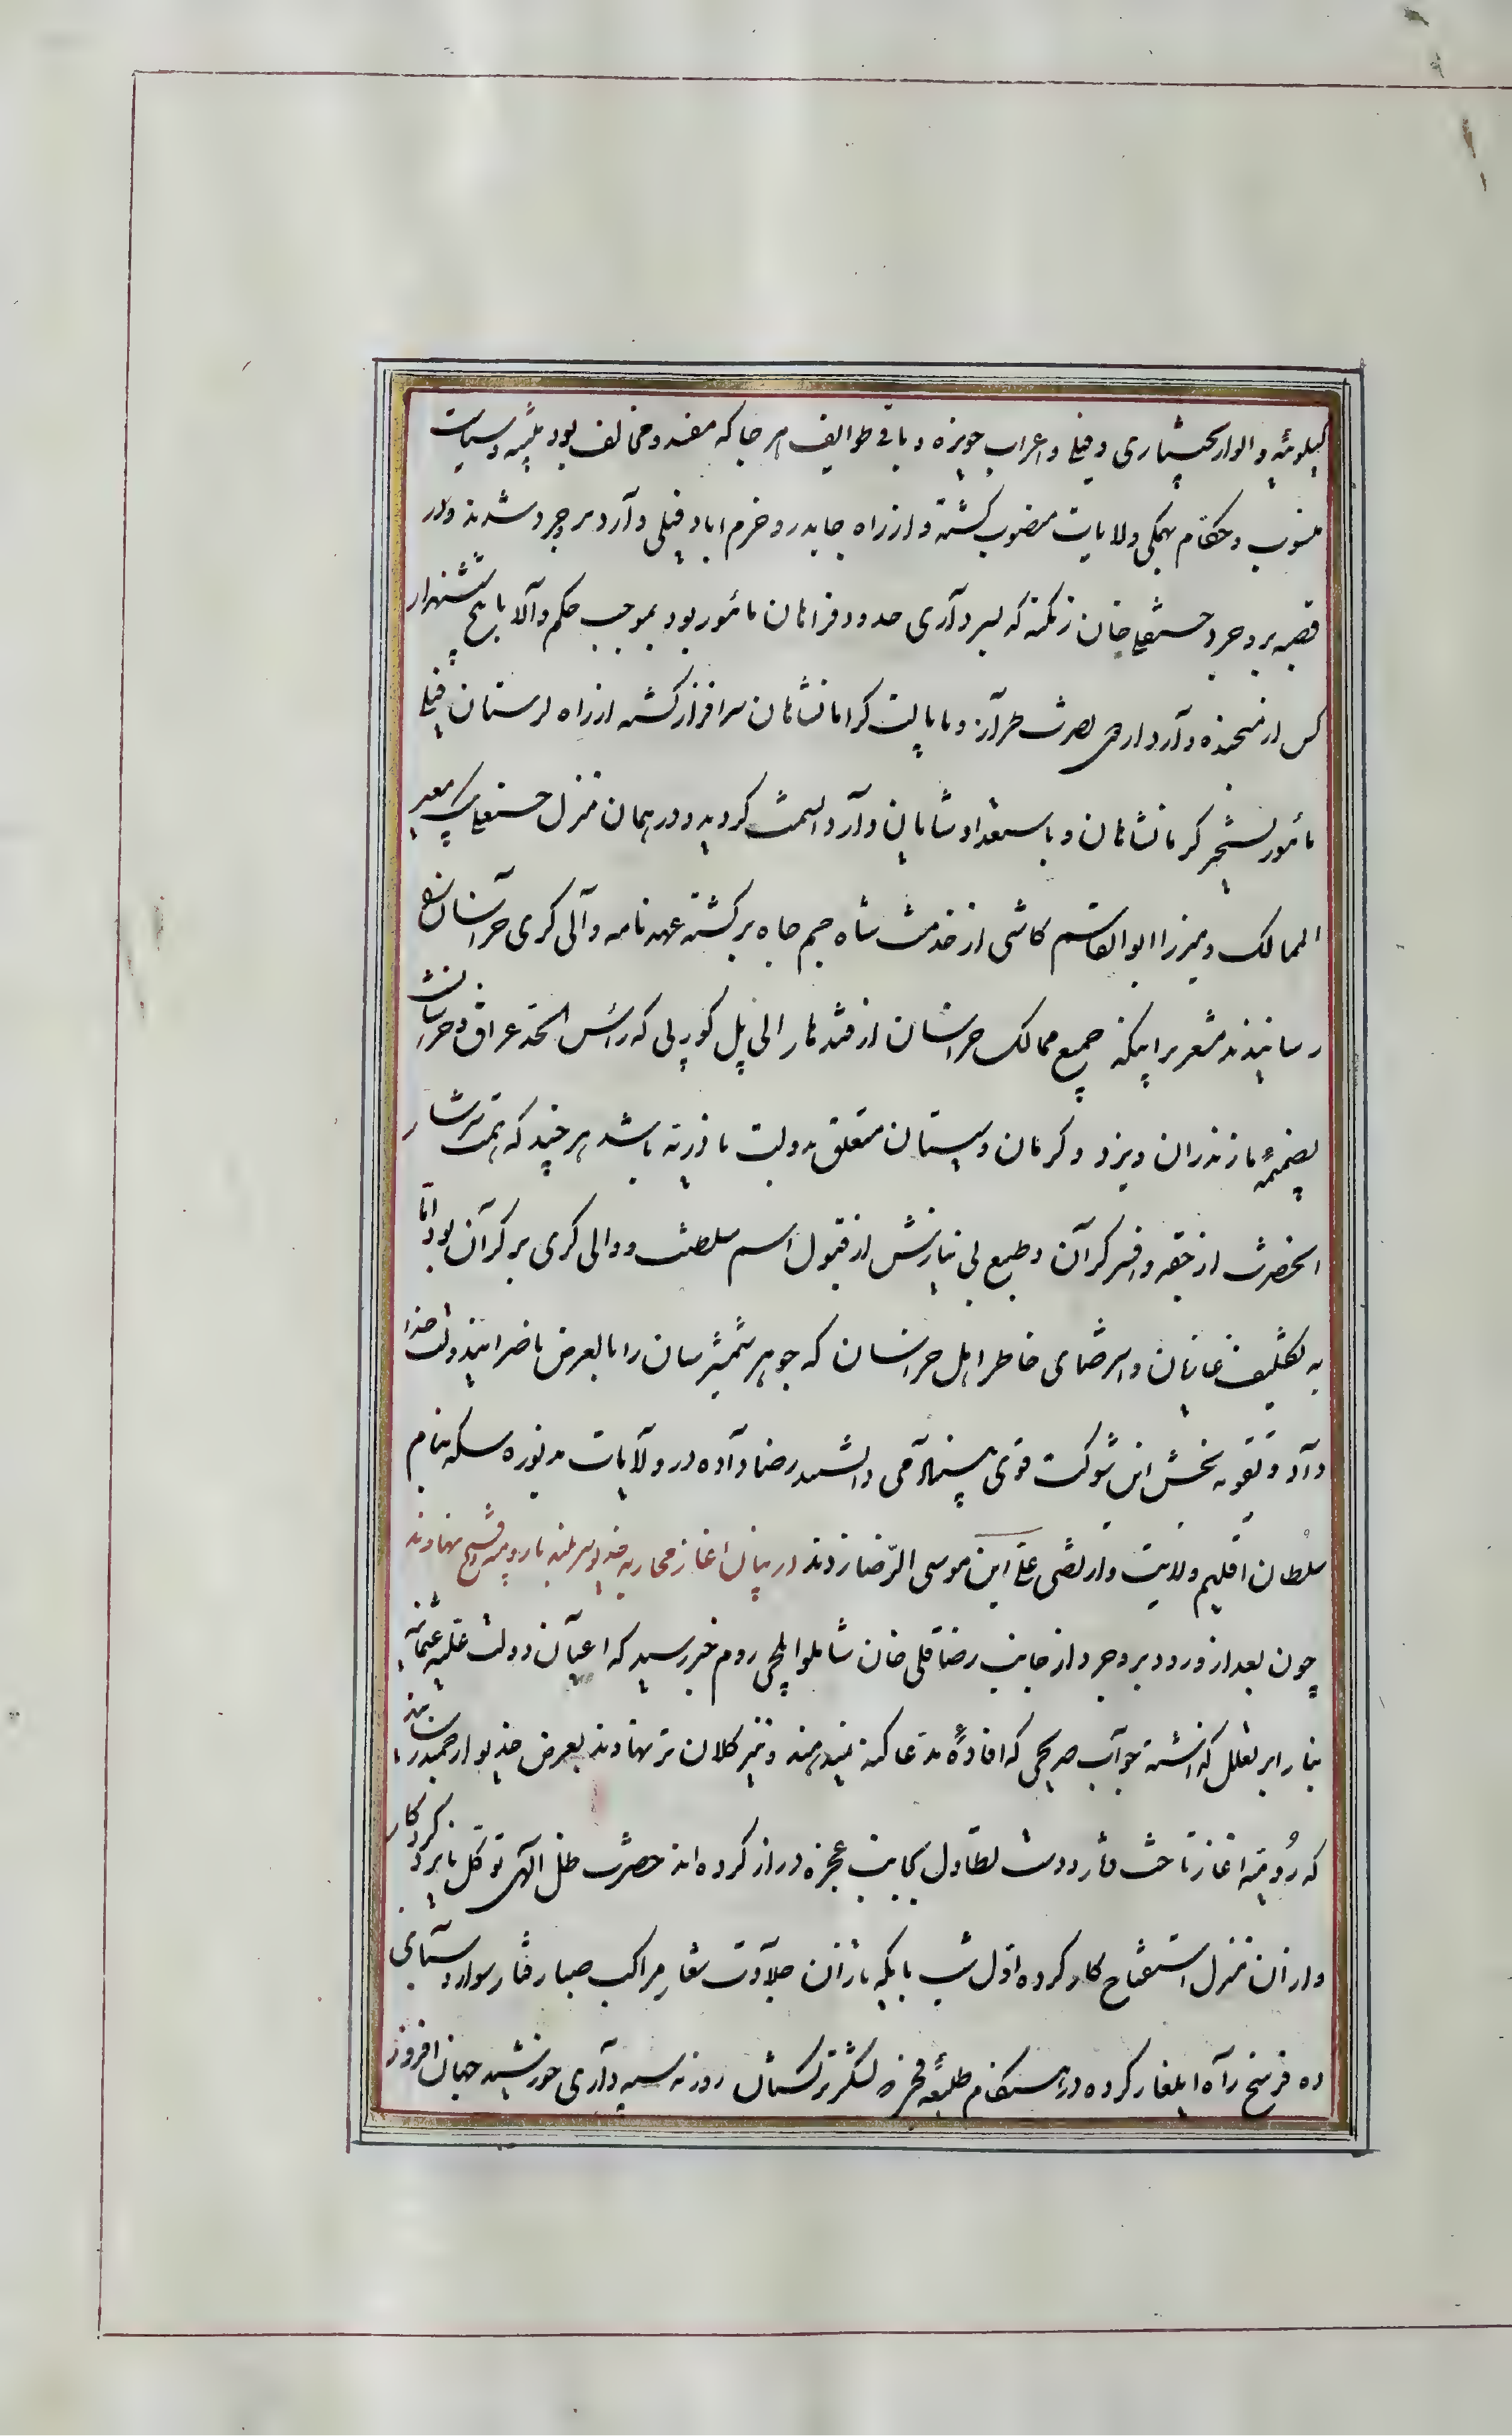 کیلویه و الوار بختیاری و فیلی و اعراب حویزه و باقی طوایف هر جا که مفسد و مخالف بود تنبیه و سیاست
منسوب و حکام بهمگی ولایات منصوب گشته و از راه جایدر و خرم اباد فیلی وارد بروجرد شدند و در
قصبه بروجرد حسنعلی خان زنگنه که بسرداری حدود فراهان مأمور بود بموجب حکم والا با پنج ششهزار
کس از منحیذه وارد اردوی نصرت طراز و بایالت کرمانشاهان سرافراز گشته از راه لرستان فیلی
مأمور بتسخیر کرمانشاهان و باستعداد شایان وارد السمت گردید و در همان منزل حسنعلی بیک معیر
الممالک و میرزا ابوالقاسم کاشی از خدمت شاه جم جاه برگشته عهدنامه والی گری خراسان
رسانیدند مشعر بر اینکه جمیع ممالک خراسان از قندهار الی پل کورپی که رأس الحد عراق و خراسانست
بضمیمهٔ مازندران و یزد و کرمان و سیستان متعلق بدولت نادریه باشد هر چند که همت سرشار
انحضرت از جقه و افسر گران و طبع بی نیازش از قبول اسم سلطنت و والی گری بر کران بود اما
به تکلیف خانان و استرضای خاطر اهل خراسان که جوهر شمشیر سان را بالعرض ناصر ایندولت خدا
داد و تقویه بخش این شوکت قوی بنیاد می دانستند رضا داده در ولایات مذبوره سکه بنام
سلطان اقلیم ولایت و ارتضی علی ابن موسی الرضا زدند در بیان اغاز محاربه خدیو سربلند با رومیه و فتح نهاوند
چون بعد از ورود بروجرد از جانب رضاقلی خان شاملو ایلچی روم خبر رسید که اعیان دولت علیه عثمانیه
بنا را بر تعلل گذاشته جواب صریحی که افادهٔ مدعا کند نمیدهند و نیز کلان تر نهاوند بعرض خدیو ارجمند رسانید
که رومیه اغاز تاخت و تاز و دست تطاول بجانب عجزه دراز کرده اند حضرت ظل الهی توکل بایزد کردگار
و از ان منزل استفتاح کار کرده اول شب با یکه تازان جلادت شعار مراکب صبا رفتار سوار و سی
ده فرسخ راه ایلغار کرده در هنگام طلیعهٔ فجر که لشکر ترکستان روز به سپهداری خورشید جهان افروز